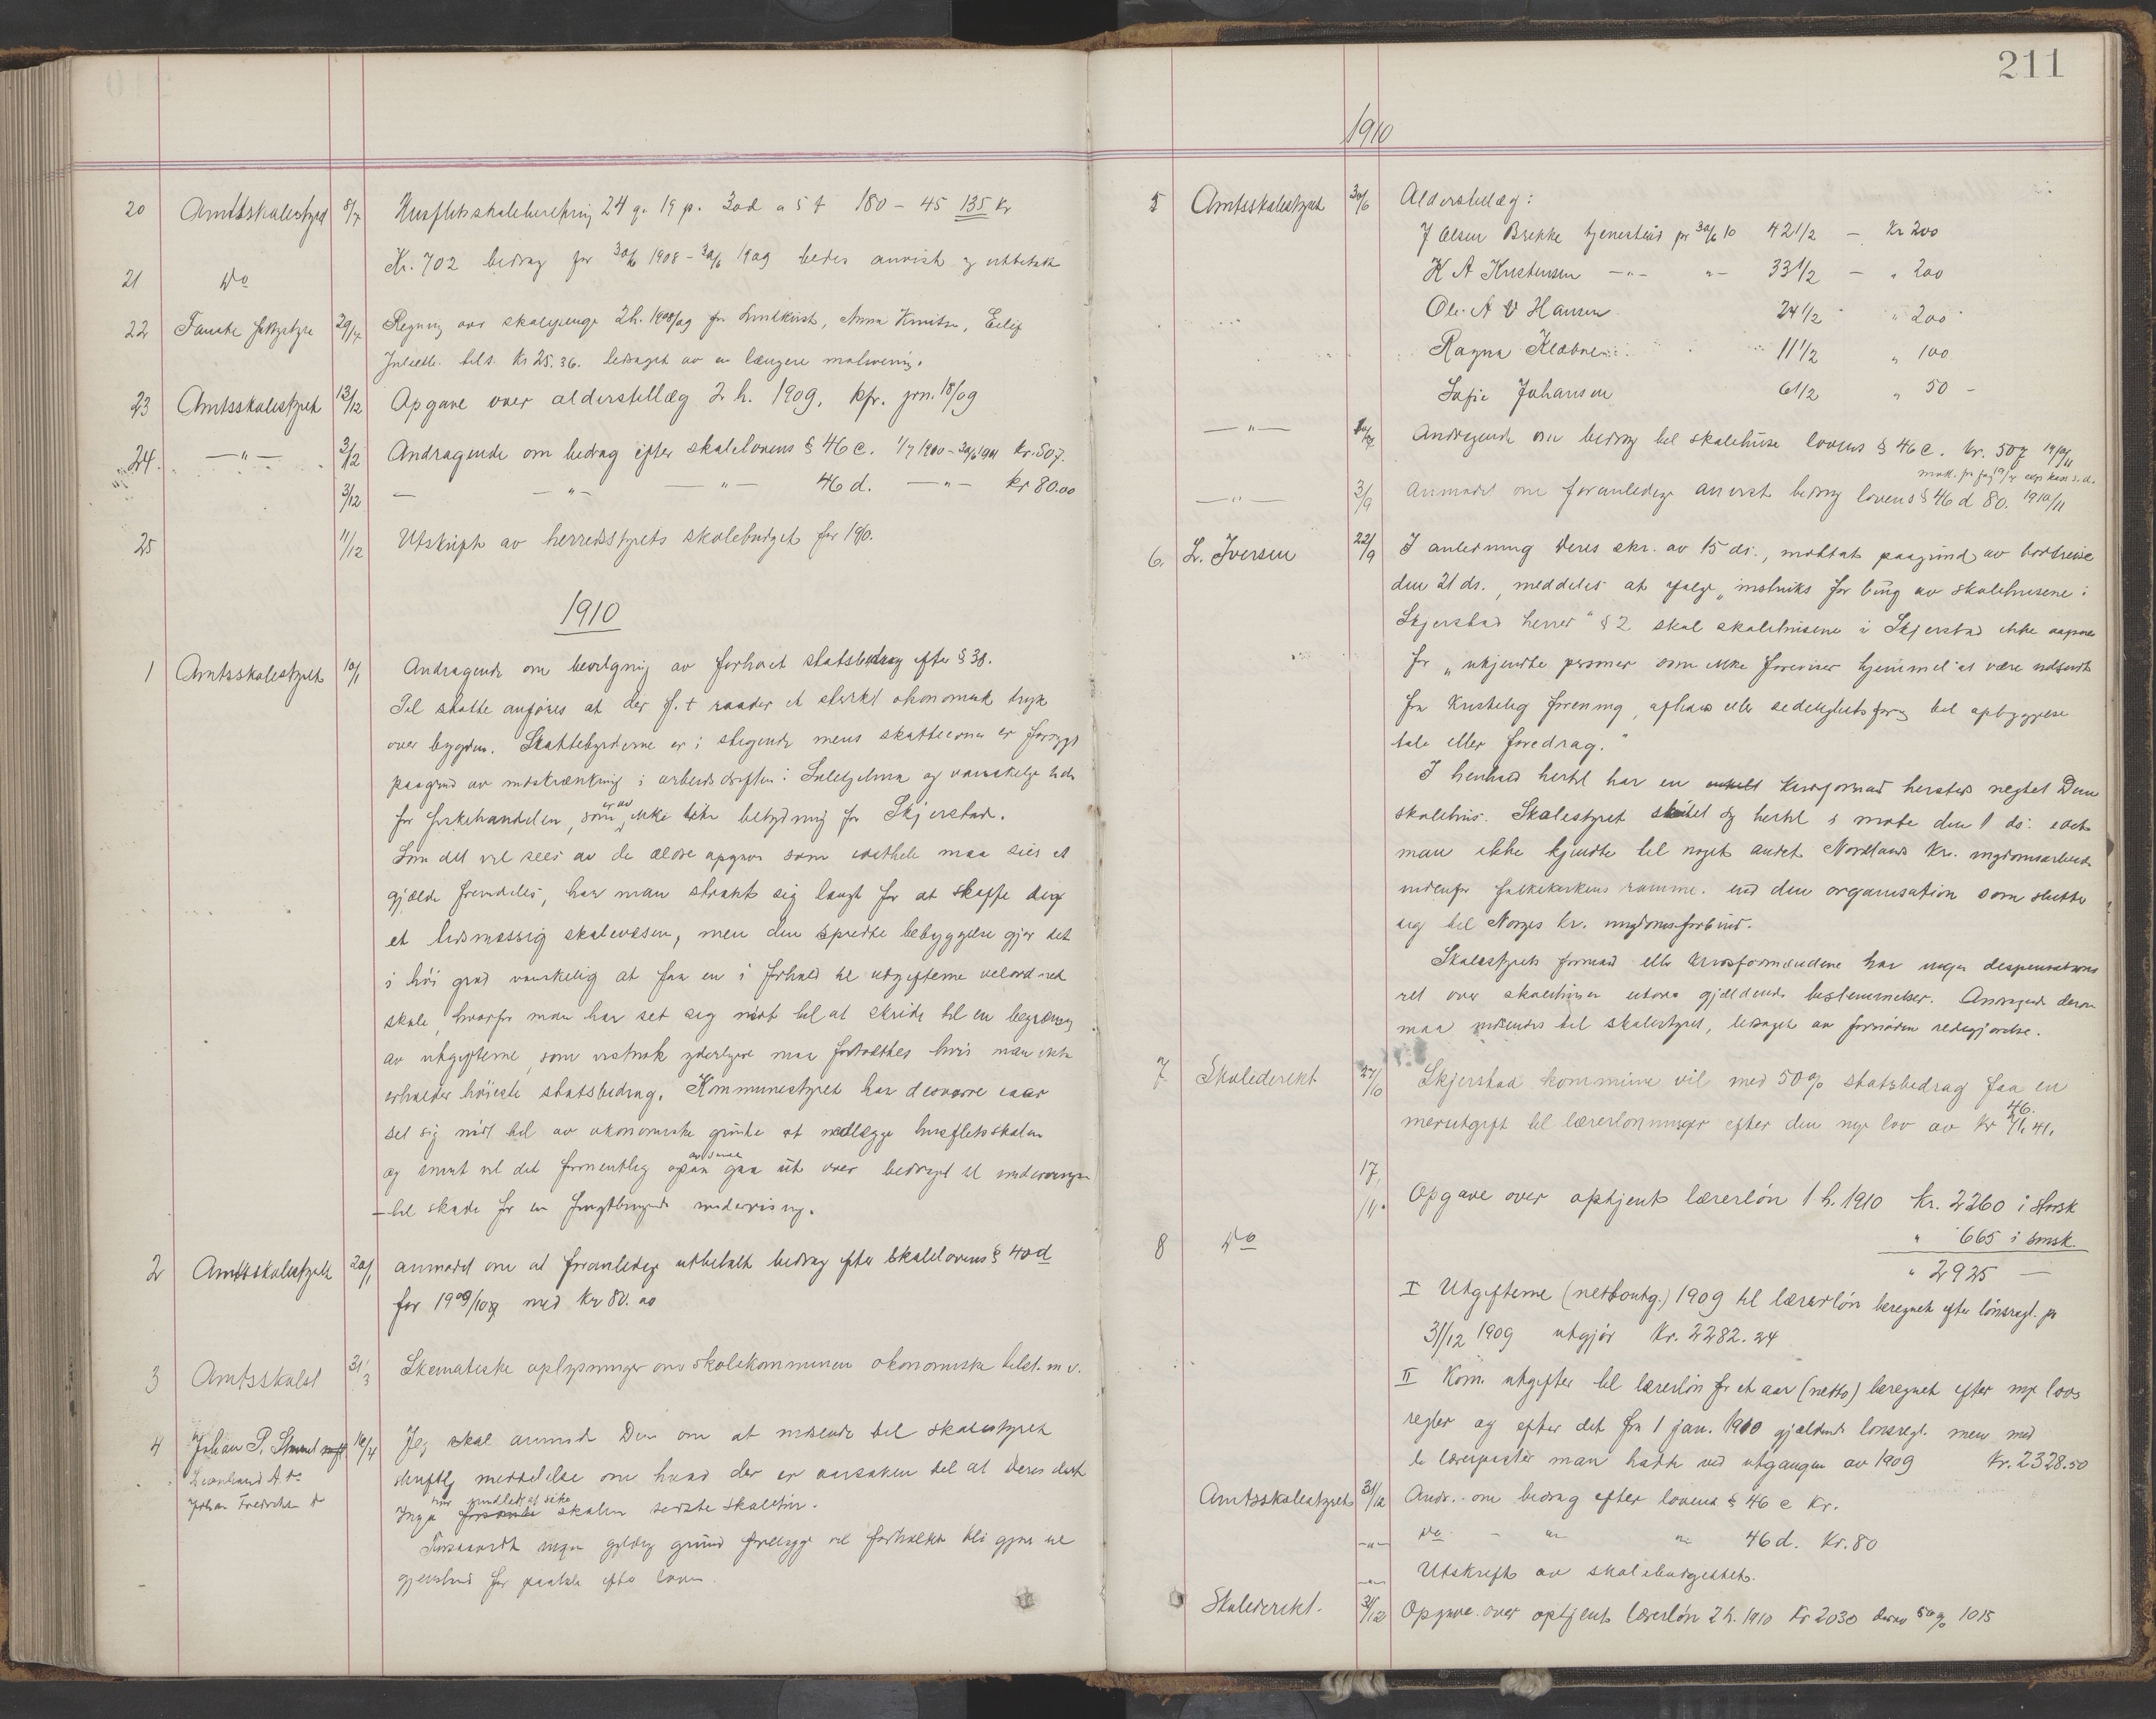 20 Amtsskolestyret 8/7 Husflidsskoleberetning 24 g. 19 p. 30d a 5 t 180 – 45 135 Kr
21 Do Kr. 702 bedrag for 30/6 1908 – 30/6 1909 bedes anvist og utbetalt
22 Fauske 29/7 Regning over skolepenge 2h. 1908/09 for Lindkvist, Anna Knutsn, Eilif
tils. Kr 25.36. ledsaget av en længere
23 Amtsskolestyret 13/12 Opgave over alderstillæg 2 h. 1909. kfr. jrn. 18/09
24. – " – 3/12 Andragende om bedrag efter skolelovens § 46 c. 1/7 1900 – 30/6 1901 Kr. 507.
3/12 — – " – — " — 46 d. — " — kr 80.00
25 11/12 Utskript av herredsstyrets skolebudget for 1910.
1910
1 Amtsskolestyret 10/1 Andragende om bevilgning av forhøiet statsbidrag efter § 38.
Til støtte anføres at der f. t raader et sterkt økonomisk tryk
over bygden. Skattebyrderne er i stigende mens skatteevnen er forsagt
paagrund av indskrænkning i arbeidsdriften i Sulitjelma og vanskelige tider
for fiskehandelen, som er av ikke liten betydning for Skjerstad.
Som det vil sees av de ældre opgaver som maa sies at
gjælde fremdeles, har man strakt sig langt for at skaffe sig
et tidsmæssig skolevæsen, men den spredte bebyggelse gjør det
i høi grad vanskelig at faa en i forhold til utgifterne velordnet
skole, hvorfor man har set sig nødt til at skride til en begrænsning
av utgifterne, som yderligere maa fortsættes hvis man ikke
erholder høieste statsbidrag. Kommunestyret har desværre iaar
set sig nødt til av økonomiske grunde at nedlægge husflidsskolen
og snart vil det formentlig gaa ut over bedraget til undervisningen
– til skade for en frugtbringende undervisning.
2 Amtsskolestyret 20/1 anmodet om at foranledige utbetalt bedrag efter skolelovens § 40d
for 1909/1909 med Kr 80.00
3 Amtsskolst 31/3 Skematiske oplysninger om skolekommunen økonomiske tilst. m v.
4 Johan P. 16/4 Jeg skal anmode Dem om at indsende til skolestyret
Leonhard A. do skriftlig meddelelse om hvad der er aarsaken til at Deres datter
Johan Fredriksen do Inga har undlatt at søke skolen sidste skoletur.
ingen gyldig grund foreligge vil forholdet bli gjort til
gjenstand for paatale efter loven.
211
1910
5 Amtsskolestyret 30/6 Alderstillæg:
J Olsen Brekke tjenestetid pr 30/6 10 42 1/2 – Kr 200
K A Kristensen – " – " – 33 1/2 – " 200
Ole A V Hansen 24 1/2 " 200
Ragna 11 1/2 " 100
Sofie Johansen 6 1/2 " 50 –
— " — Andragende om bedrag til skolehuse lovens § 46 c. Kr. 507 1910/11
— " — 3/9 Anmodet om foranledige anvist bedrag lovens § 46 d 80. 1910/11
6. L. Iversen 22/9 I anledning Deres skr. av 15 ds., mottat paagrund av bortreise
den 21 ds., meddeles at ifølge „instruks for brug av skolehusene i
Skjerstad herred" § 2 skal skolehusene i Skjerstad ikke aapnes
for „ukjendte personer som ikke foreviser hjemmel at være utsendt
fra kristelig forening, afhold eller sedelighetsforening til opbyggelse
tale eller foredrag."
I henhold hertil har en enkelt kredsformand hersteds negtet Dem
skolehus. Skolestyret sluttet sig hertil i møte den 1 ds. idet
man ikke kjendte til noget andet Nordlands kr. ungdomsarbeide
indenfor folkekirkens ramme. end den organisation som slutter
sig til Norges kr. ungdomsforbund.
Skolestyrets formand eller kredsformændene har ingen dispensations
ret over skolehusene utover gjældende bestemmelser. Andragende derom
maa indsendes til skolestyret, ledsaget av fornøden redegjørelse.
7 Skoledirekt 27/10 Skjerstad kommune vil med 50 % statsbedrag faa en
merutgift til lærerlønninger efter den nye lov av Kr 46. 41.
8 Do 17/11 Opgave over optjent lærerløn 1 h. 1910 Kr. 2260 i storsk
" 665 i smsk.
" 2925 —
I Utgifterne (nettoutg.) 1909 til lærerløn beregnet efter lønsregl. pr
31/12 1909 utgjør Kr. 2282.24
II Kom. utgifter til lærerløn for et aar (netto) beregnet efter nye lovs
regler og efter det fra 1 jan. 1910 gjældende lønsregl. men med
de lærerposter man hadde ved utgangen av 1909 Kr. 2328.50
Amtsskolestyret 31/12 Andr. om bedrag efter lovens § 46 c Kr.
– " – do – " – " – 46 d. Kr. 80
– " – Utskrift av skolebudgettet.
Skoledirekt. 31/12 Opgave over optjent lærerløn 2 h. 1910 Kr 2030 derav 50 % 1015